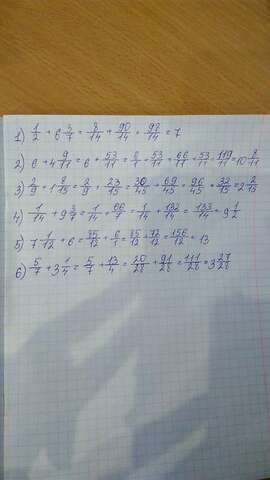 1) 1/2 + 6 3/7 = 8/14 + 90/14 = 98/14 = 7
2) 6 + 4 9/11 = 6 + 53/11 = 6/1 + 53/11 = 66/11 + 53/11 = 119/11 = 10 9/11
3) 2/3 + 1 8/15 = 2/3 + 23/15 = 30/45 + 69/45 = 96/45 = 32/15 = 2 2/15
4) 1/14 + 9 3/7 = 1/14 + 66/7 = 1/14 + 132/14 = 133/14 = 9 1/2
5) 7 1/12 + 6 = 85/12 + 6/1 = 85/12 + 72/12 = 156/12 = 13
6) 5/7 + 3 1/4 = 5/7 + 13/4 = 20/28 + 91/28 = 111/28 = 3 27/28